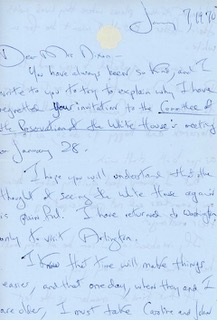 January
Dear Mrs Nixon —
You have always been so kind, and I
write to you to try to explain why I have
regretted your invitation to the Committee of
the Preservation of the White House's meeting
on January 28.
I hope you will understand that the
thought of seeing the White House again
is painful. I have returned to Washington
only to visit Arlington.
I know that time will make things
easier, and that one day, when they and I
are older, I must take Caroline and John